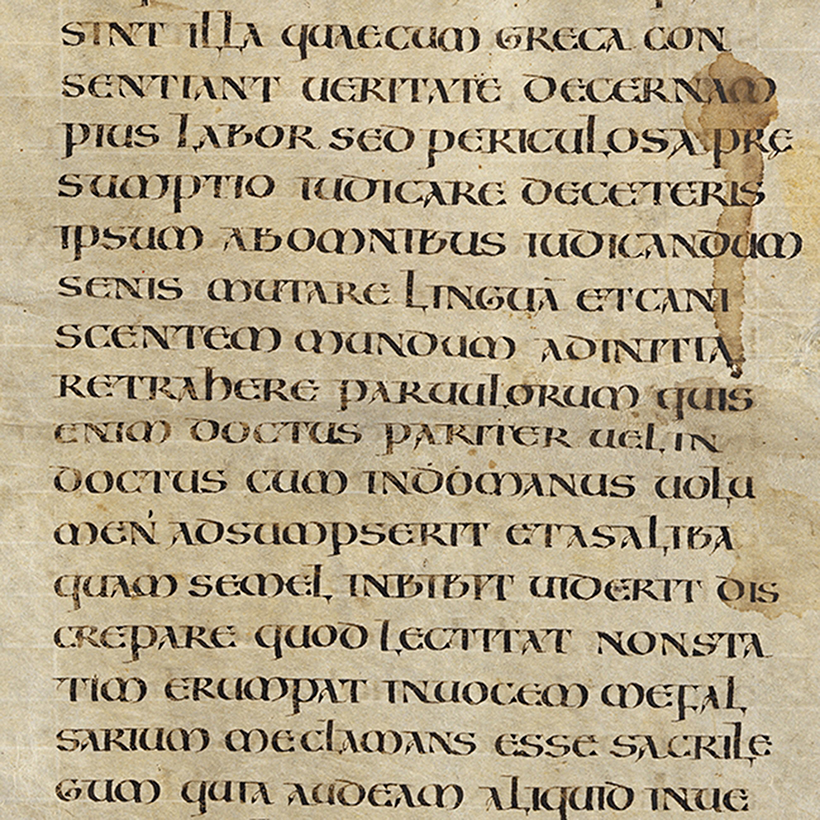 sint illa quaecum greca con
sentiant ueritate decernam
pius labor sed periculosa prę
sumptio iudicare deceteris
ipsum abomnibus iudicandum
senis mutare linguā etcani
scentem mundum adinitia
retrahere paruulorum quis
enim doctus pariter uel in
doctus cum indómanus uolu
meń adsumpserit etasaliba
quam semel inbibit uiderit dis
crepare quod lectitat nonsta
tim erumpat inuocem mefal
sarium meclamans esse sacrile
gum quia audeam aliquid inue